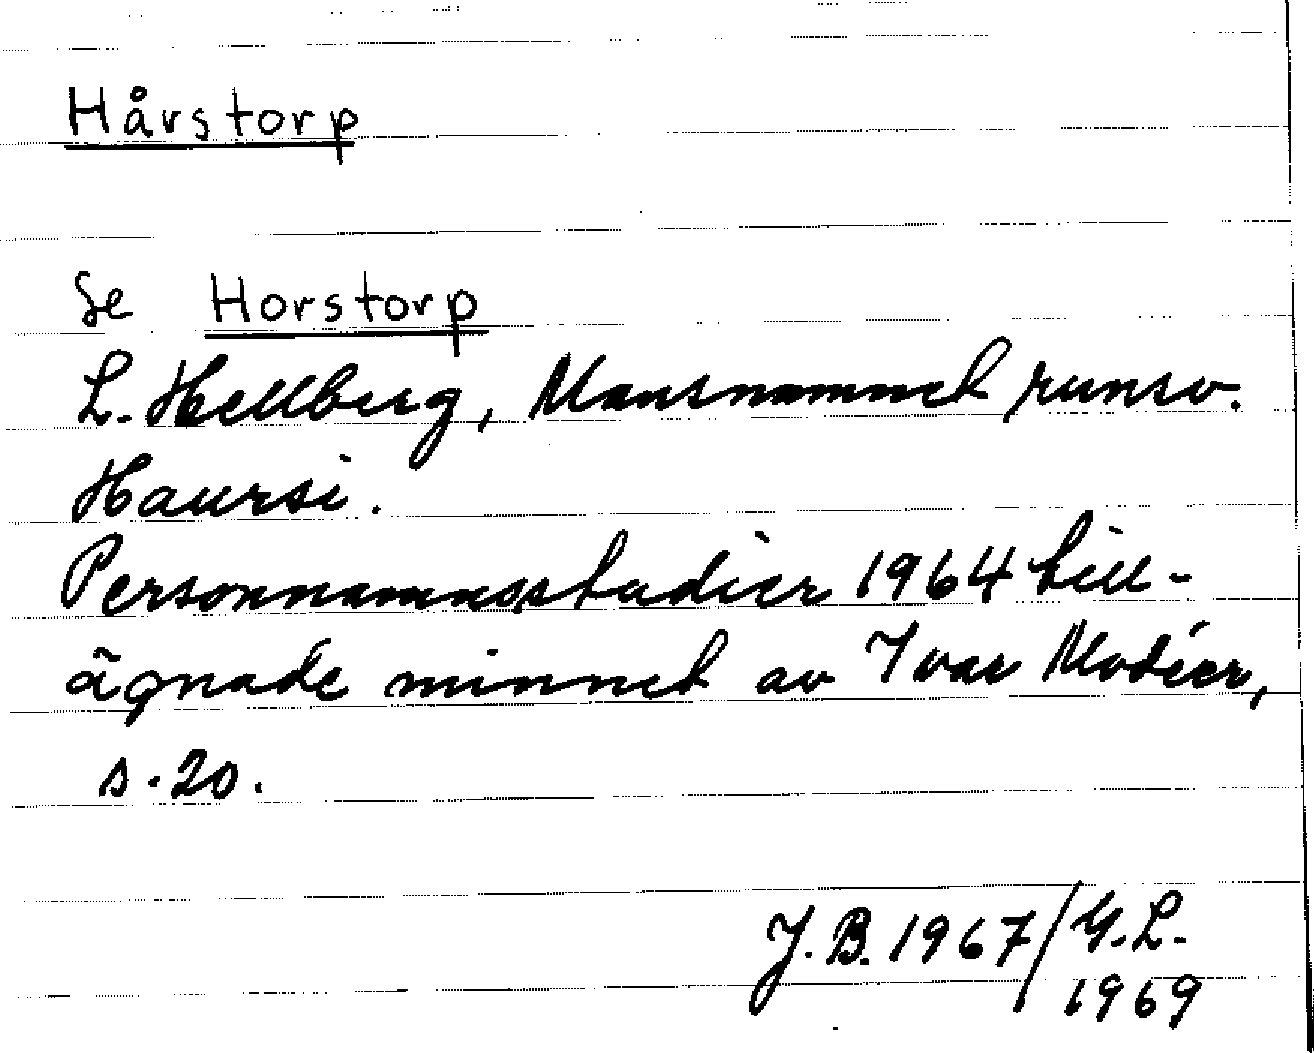 Hårstorp
Se Horstorp
L. Hellberg, Mansnamnet runsv.
Haursi.
Personnamnsstudier 1964 till-
ägnade minnet av Ivar Modéer,
s. 20.
J.B. 1967/G.L.
1969